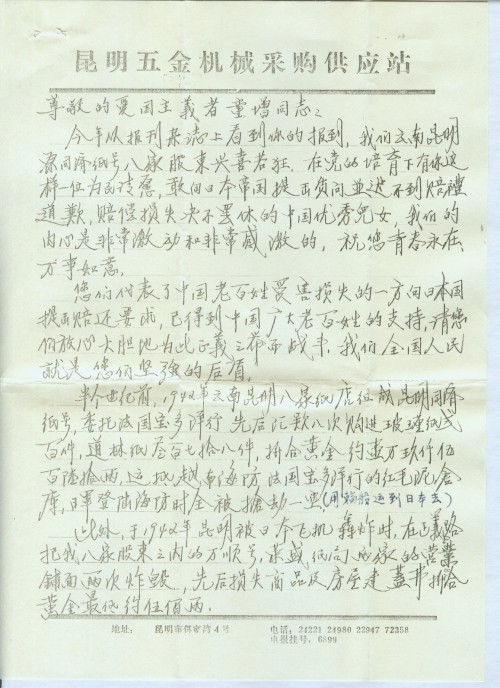 昆明五金机械采购供应站
尊敬的爱国主義者童增同志:
今年从报刊杂志上看到你的报到,我们云南昆明
源同济纸号八家股東兴喜若狂.在党的培育下有你这
样一位为民请愿,敢向日本帝国提出质问並遞不到赔禮
道歉,赔偿损失决不罢休的中国优秀兒女,我们的
内心是非常激动和非常感激的,祝您青春永在,
万事如意.
您们代表了中国老百姓受害损失的一方向日本国
提出赔还要求,已得到中国广大老百姓的支持,请您
们放心大胆地为此正義之举而战斗.我们全国人民
就是您们坚强的后盾.
半个世纪前,1940年云南昆明八家纸店组成昆明同济
纸号,委托法国宝多洋行先后汇款八次购進玻璃纸弍
百件,道林纸叁百七拾八件,拆合黄金约壹万玖仟伍
百陆拾两,运抵越南海防法国宝多洋行的红毛泥倉
库,日軍登陆海防时全被搶劫一空(用輪船运到日本去)
此外,于1942年昆明被日本飞机轰炸时,在正義路
把我八家股東之内的万順号,
纸店両家的营業
鋪面两次炸毁,先后损失商品及房屋建蓋井拆合
黄金最低约伍佰两.
地址: 昆明市佴家湾4号
电话:24221 24980 22947 72358
电报挂号:6899